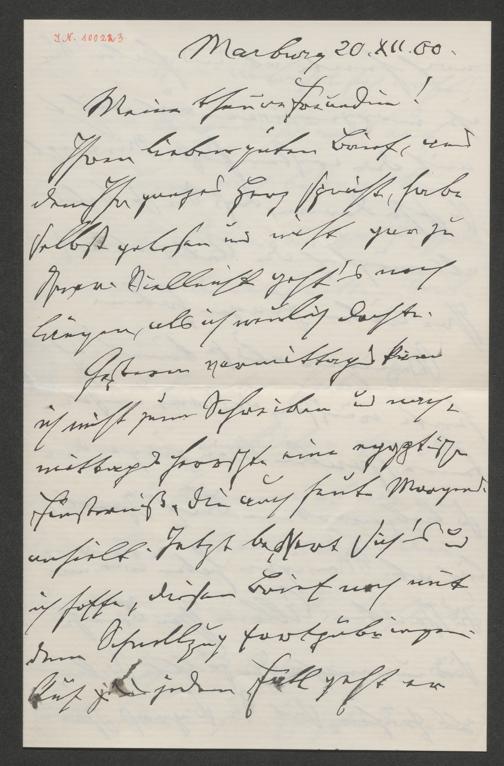 J.N. 100223
Marburg 20.XII.00.
Meine theure Freundin!
Ihren lieben guten Brief, aus
dem Ihr ganzes Herz spricht, habe
selbst gelesen und nicht gar zu
Vielleicht geht's noch
länger, als ich neulich dachte.
Gestern vormittags kam
ich nicht zum Schreiben u nach-
mittags herrschte eine egyptische
Finsterniß, die auch heute Morgens
anhielt. Jetzt bessert sich's u
ich hoffe, diesen Brief noch mit
dem Schnellzug fortzubringen.
Auf jeden Fall geht er